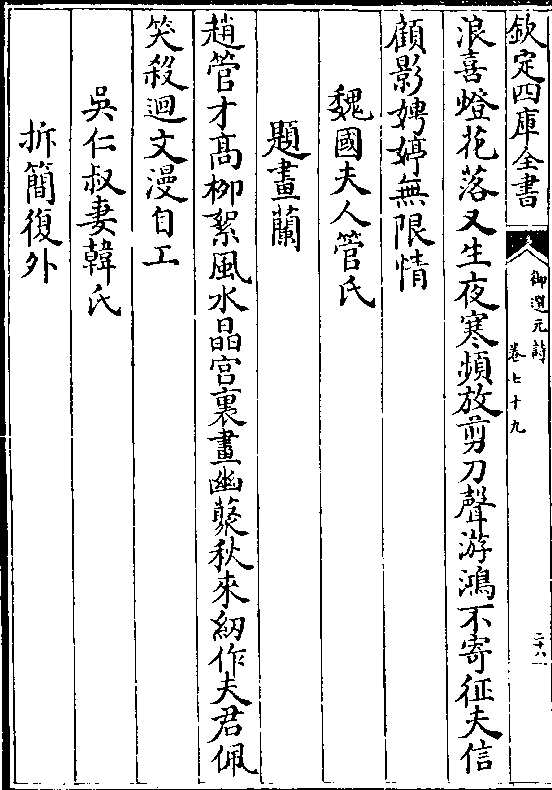 欽定四庫全書
御選元詩
卷七十九
二十八
浪喜燈花落又生夜寒頻放剪刀聲游鴻不寄征夫信
顧影娉婷無限情
魏國夫人管氏
題畫蘭
趙管才髙柳絮風水晶宫裏畫幽藂秋來紉作夫君佩
笑殺迴文漫自工
吳仁叔妻韓氏
拆簡復外